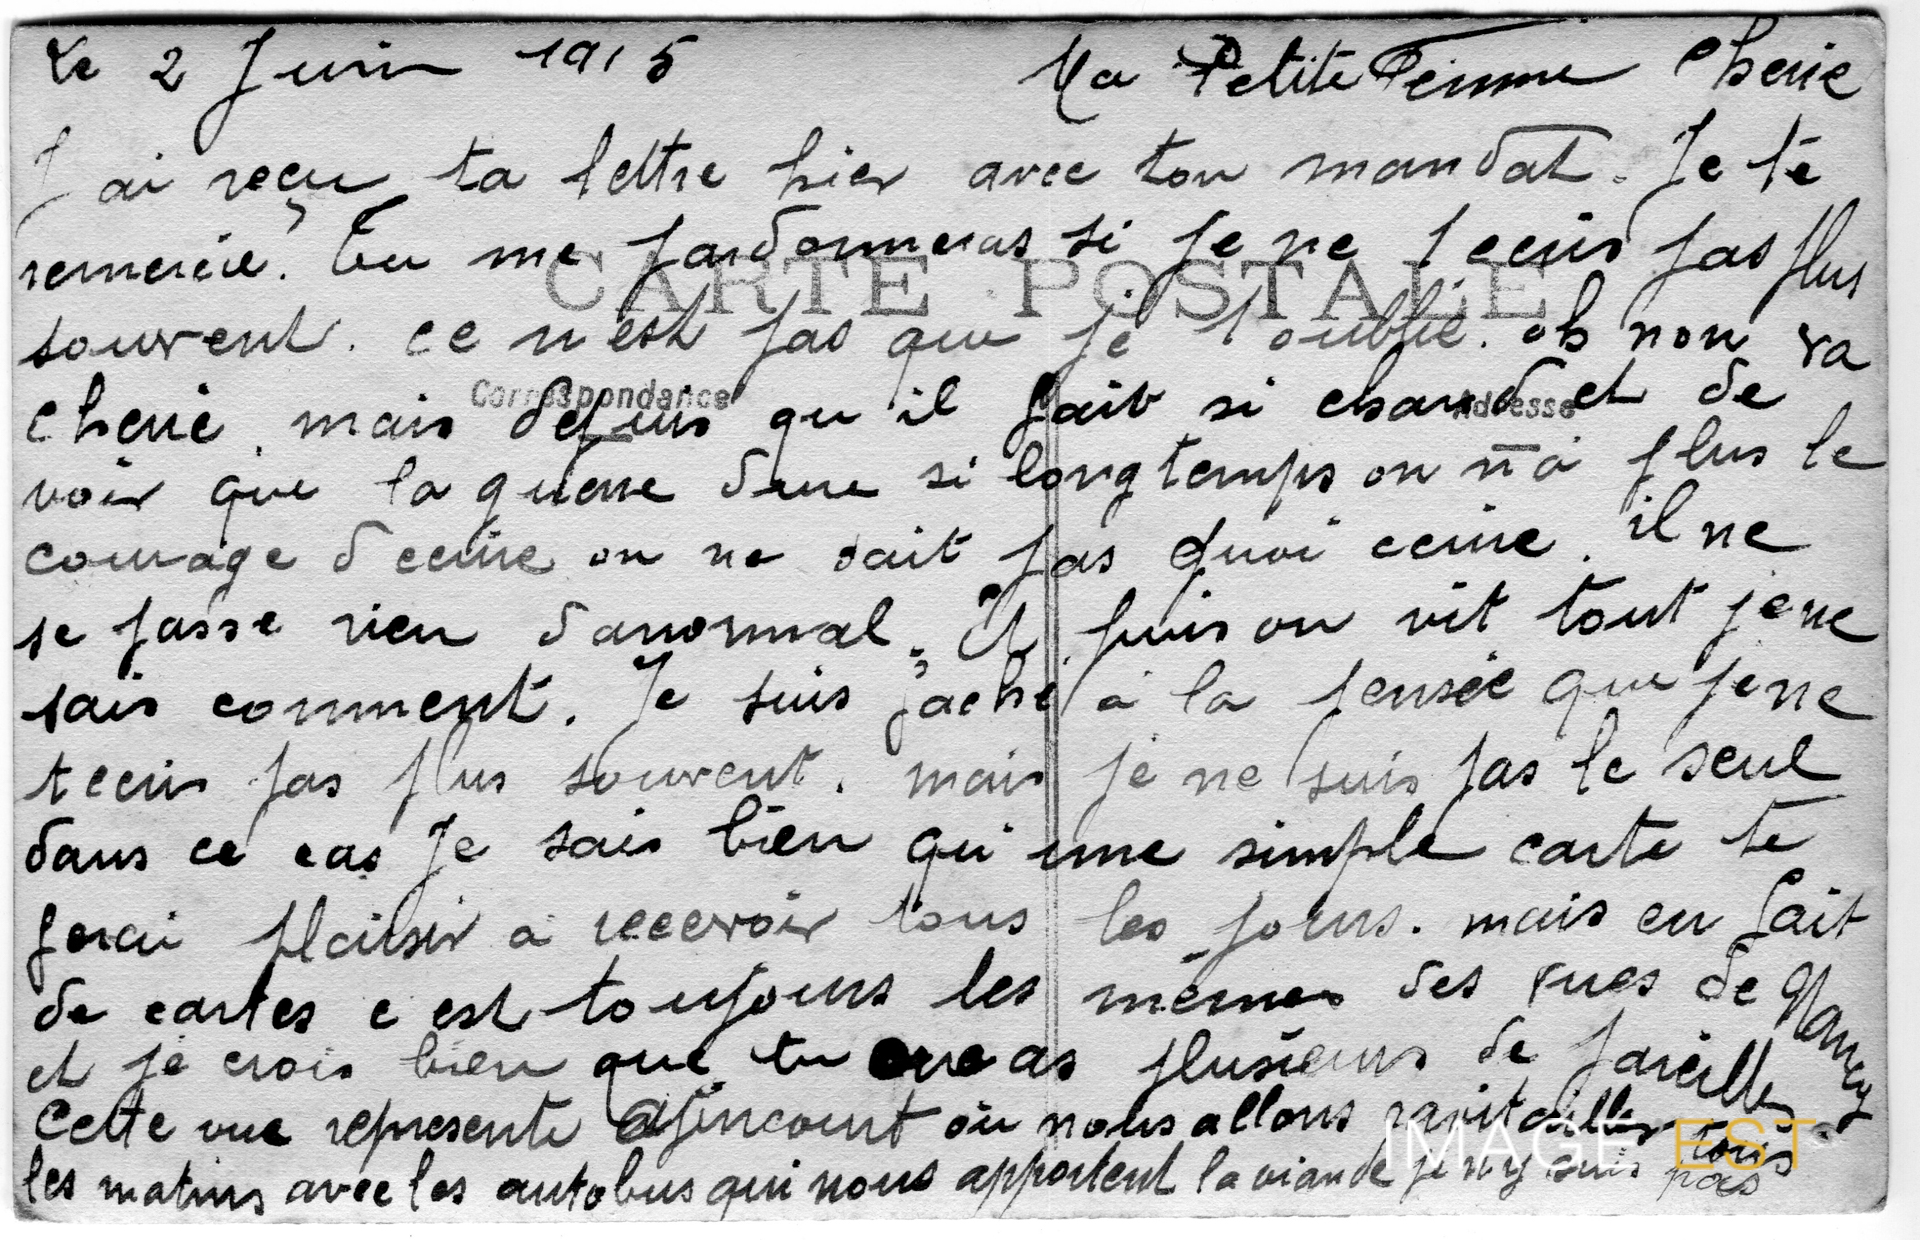 Le 2 Juin 1915 Ma Petite Femme Cherie
J ai reçu ta lettre hier avec ton mandat. Je te
remercie. Tu me pardonneras si je ne t ecris pas plus
CARTE POSTALE
souvent. ce n est pas que je t oublie. oh non va
Correspondance Adresse
cherie. mais depuis qu il fait si chaud et de
voir que la guerre dure si longtemps on n a plus le
courage d ecrire on ne sait pas quoi ecrire. il ne
se passe rien d anormal. Et puis on vit tout je ne
sais comment. Je suis faché à la pensée que je ne
t ecris pas plus souvent. mais je ne suis pas le seul
dans ce cas Je sais bien qu une simple carte te
ferai plaisir a recevoir tous les jours. mais en fait
de cartes c est toujours les mêmes des vues de Nancy
et je crois bien que tu as plusieurs de pareilles
Cette vue represente où nous allons ravitailler tous
les matins avec les autobus qui nous apportent la viande je n y suis pas
IMAGE EST